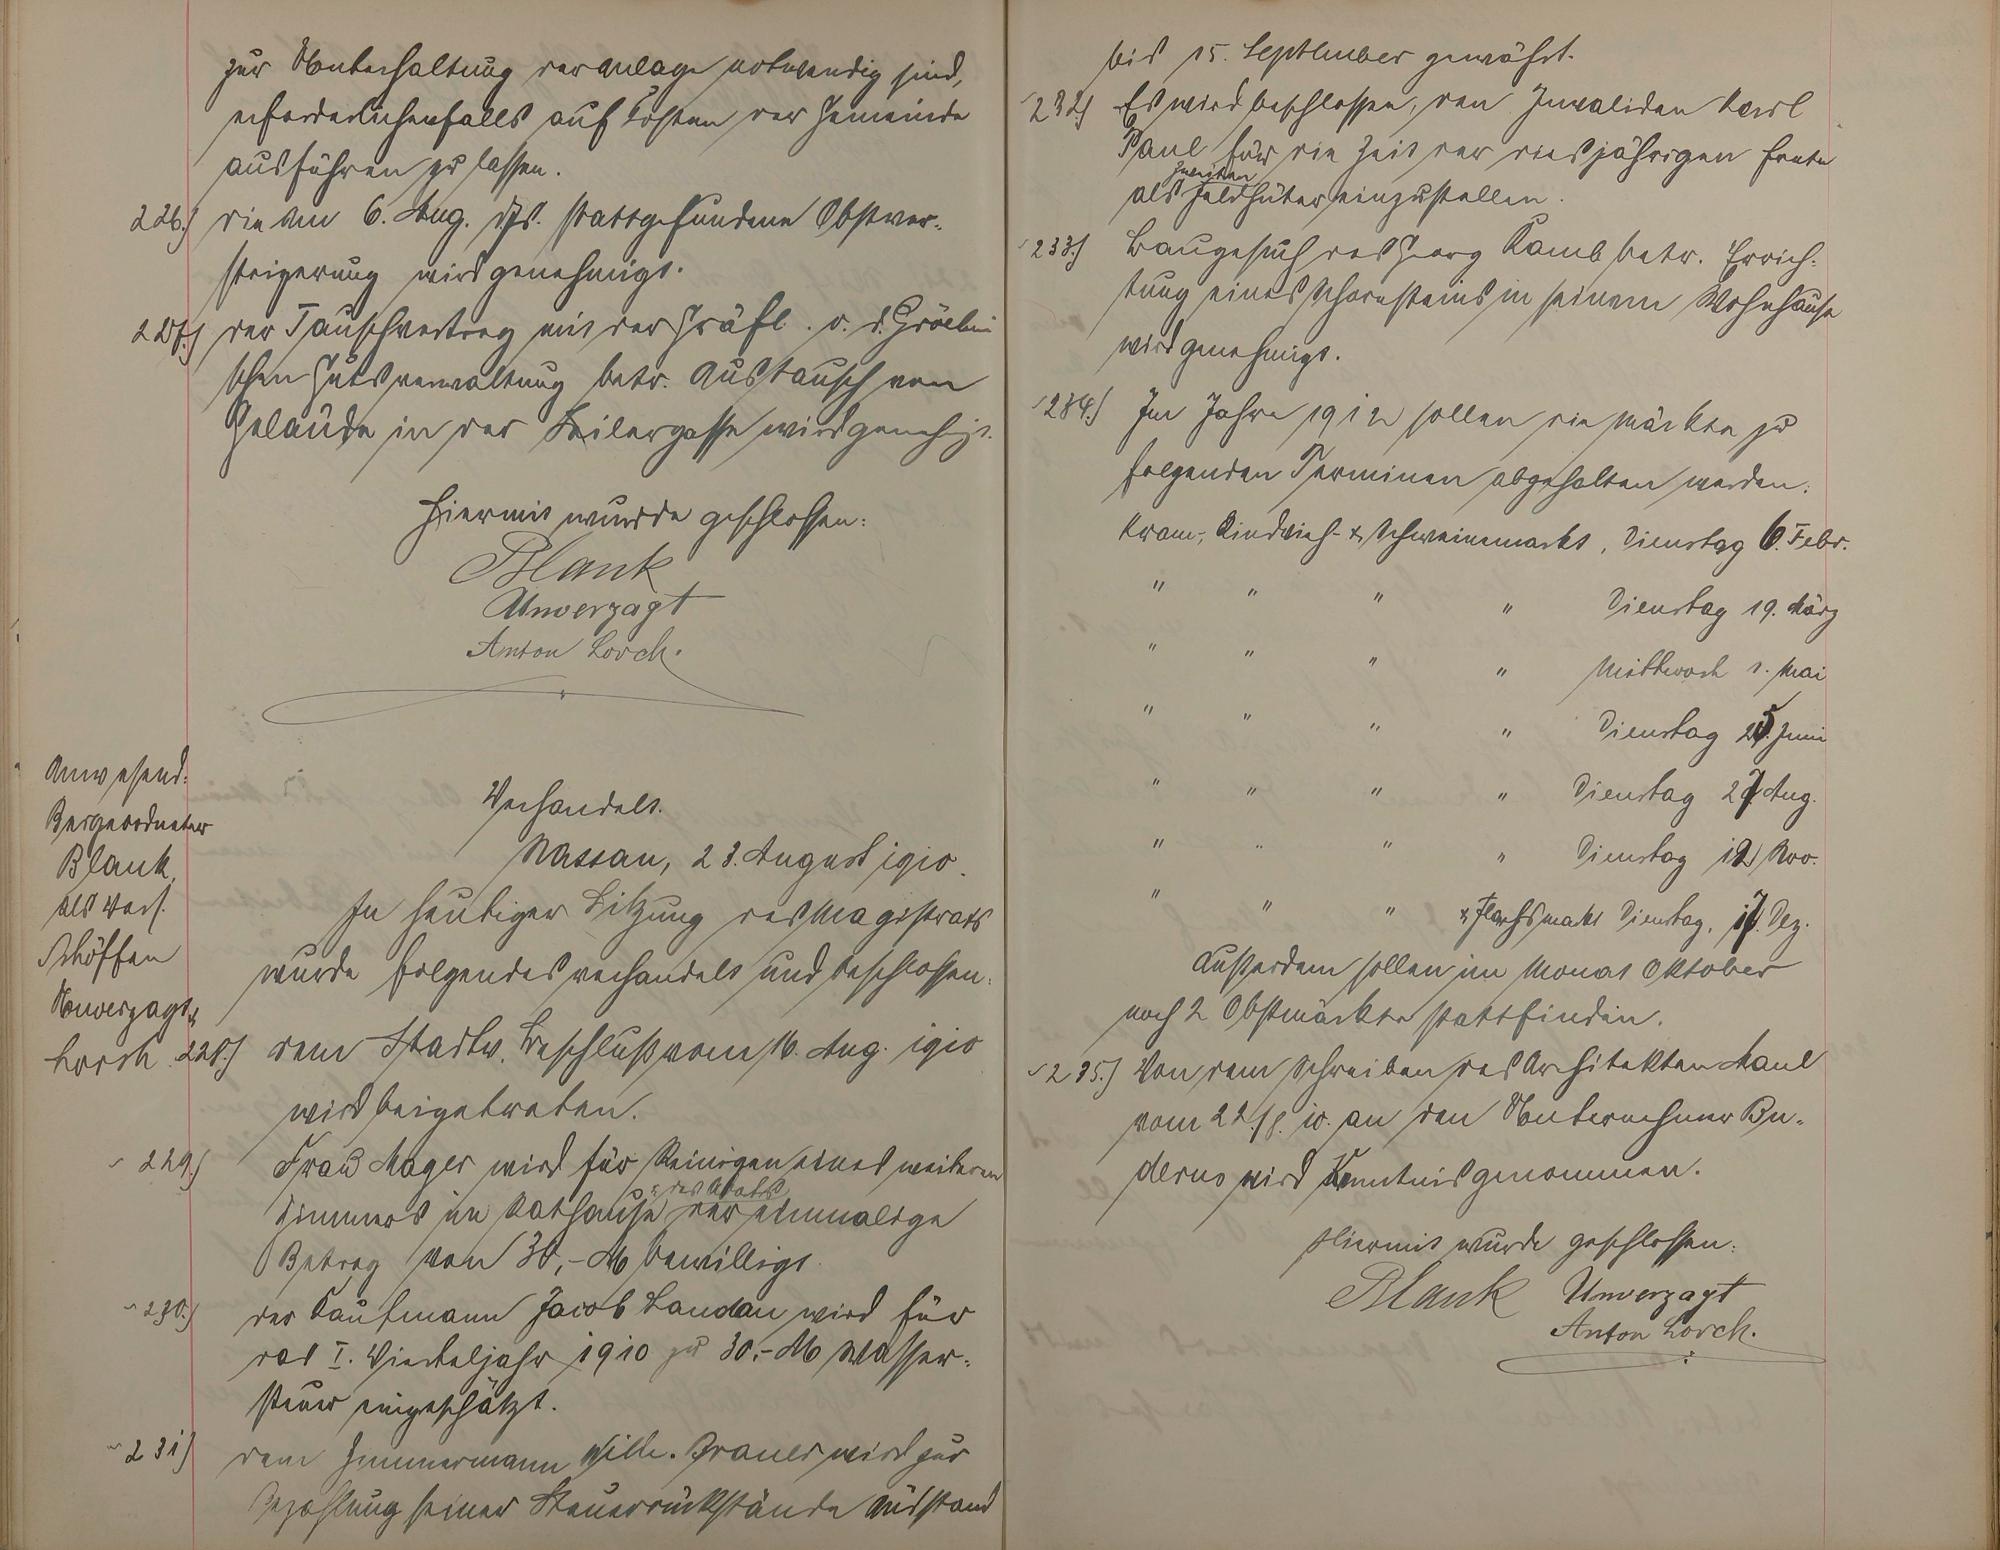 zur Unterhaltung der Anlage notwendig sind,
erforderlichenfalls auf Kosten der Gemeinde
ausführen zu lassen.
226.) Die am 6. Aug. ds. Js. stattgefundene Obstver-
steigerung wird genehmigt.
227.) Der Tauschvertrag mit der Gräfl. v. d. Gröben
schen Gutsverwaltung betr. Austausch von
Gelände in der Seilergasse wird genehmigt.
Hiermit wurde geschlossen:
Blank
Unverzagt
Anton Lorch.
Anwesend:
Beigeordneter
Blank,
als Vors.
Schöffen
Unverzagt &
Lorch.
Verhandelt.
Nassau, 23. August 1910.
In heutiger Sitzung des Magistrats
wurde folgendes verhandelt und beschlossen:
228.) Dem Stadtv. Beschluß vom 16. Aug. 1910
wird beigetreten.
229.) Frau Mager wird für Reinigen eines weiteren
Zimmers im Rathause & des Aborts der einmalige
Betrag von 30,- M bewilligt.
230.) Der Kaufmann Jacob Landau wird für
das I. Vierteljahr 1910 zu 30.- M Wasser-
steuer eingeschätzt.
231.) Dem Zimmermann Wilh. wird zur
Bezahlung seiner Steuerrückstände Ausstand
bis 15. September gewährt.
232.) Es wird beschlossen, den Invaliden Karl
Paul für die Zeit der diesjährigen Ernte
als zweiten Feldhüter einzustellen.
233.) Baugesuch des Georg Kamb betr. Errich-
tung eines Schornsteins in seinem Wohnhause
wird genehmigt.
234.) Im Jahre 1912 sollen die Märkte zu
folgenden Terminen abgehalten werden:
Kram-, Rindvieh- & Schweinemarkt, Dienstag 6. Febr.
" " " " Dienstag 19. März
" " " " Mittwoch 1. Mai
" " " " Dienstag 25. Juni
" " " " Dienstag 27. Aug.
" " " " Dienstag 12. Nov.
" " " & Flachsmarkt Dienstag, 17. Dez.
Außerdem sollen im Monat Oktober
noch 2 Obstmärkte stattfinden.
235.) Von dem Schreiben des Architekten Maul
vom 22./8. 10. an den Unternehmer Bu-
derus wird Kenntnis genommen.
Hiermit wurde geschlossen:
Blank Unverzagt
Anton Lorch.